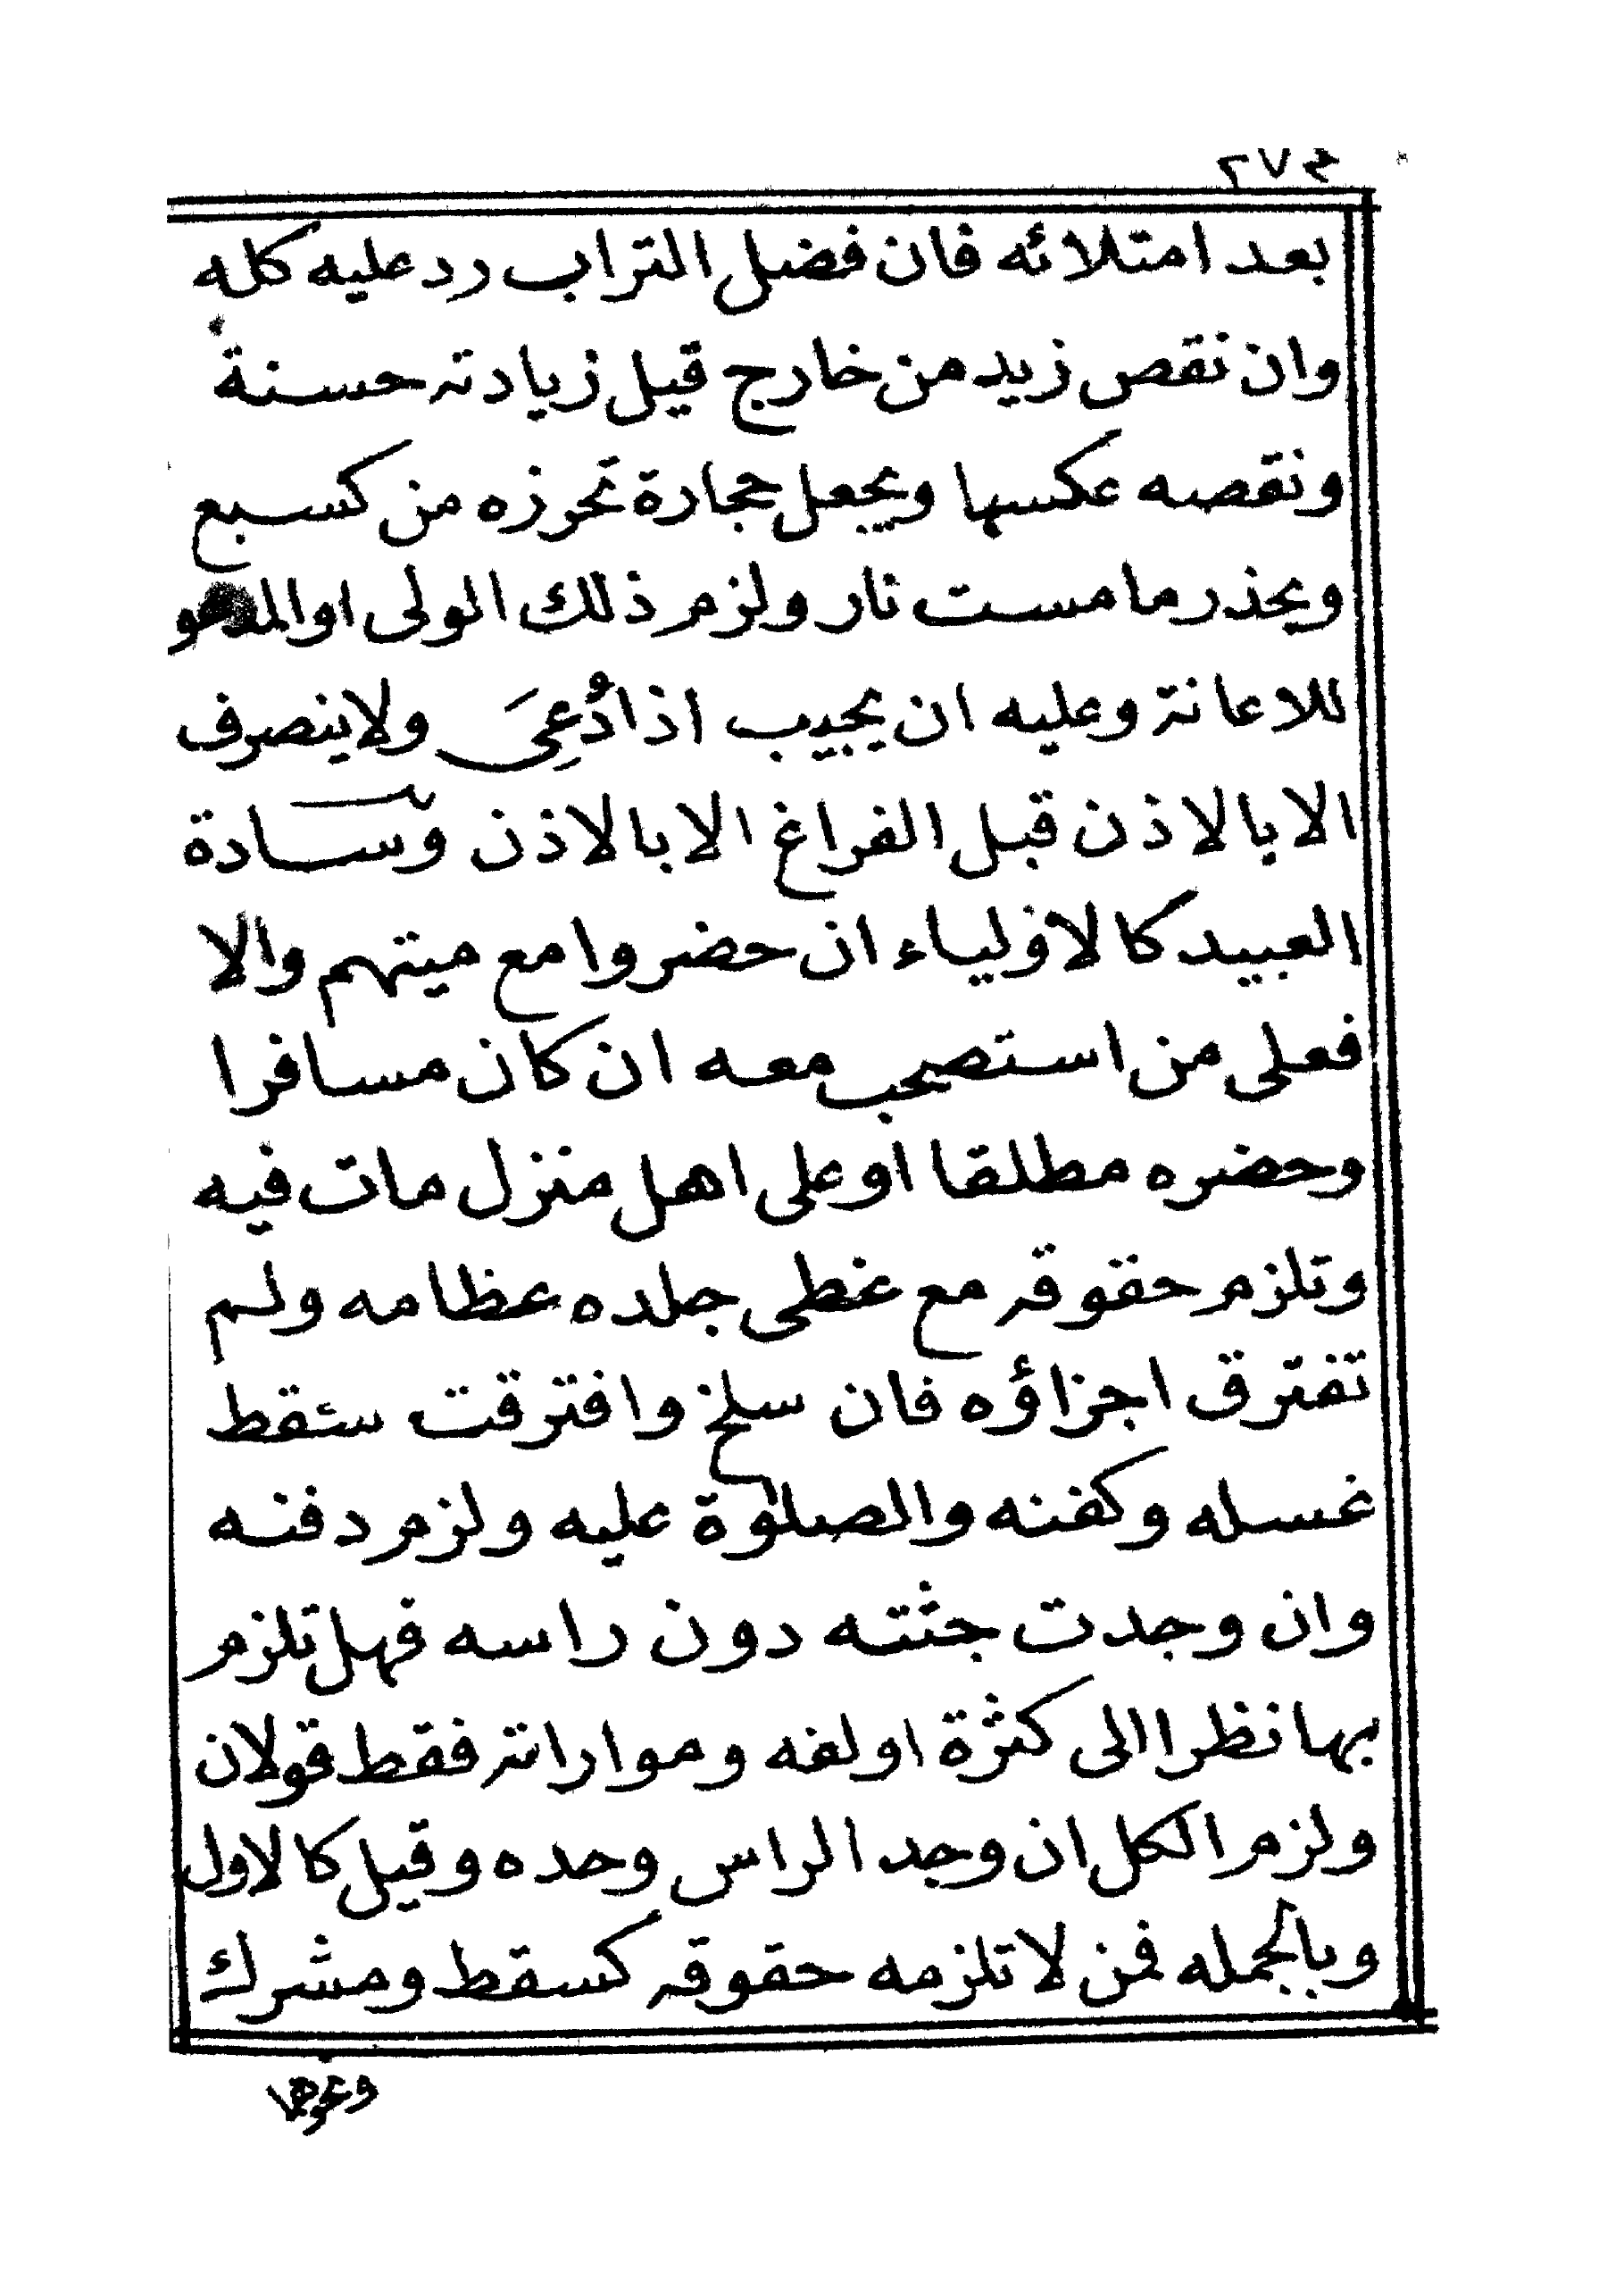 ٢٧٣
بعد امتلائه فان فضل التراب رد عليه كله
وان نقص زيد من خارج قيل زيادته حسنة
ونقصه عكسها ويجعل حجارة تحرزه من كسبع
ويحذر ما مست نار ولزم ذلك الولى او المدعو
للاعانة وعليه ان يجيب اذا دُعِىَ ولا ينصرف
الا بالاذن قبل الفراغ الا بالاذن وسادة
العبيد كالاولياء ان حضروا مع ميتهم والا
فعلى من استصحب معه ان كان مسافرا
وحضره مطلقا او على اهل منزل مات فيه
وتلزم حقوقه مع غطى جلده عظامه ولم
تفترق اجزاؤه فان سلخ وافترقت سقط
غسله وكفنه والصلوة عليه ولزم دفنه
وان وجدت جثته دون راسه فهل تلزم
بها نظرا الى كثرة او لفه ومواراته فقط قولان
ولزم الكل ان وجد الراس وحده وقيل كالاول
وبالجمله فمن لا تلزمه حقوقه كسقط ومشرك
ونحوها